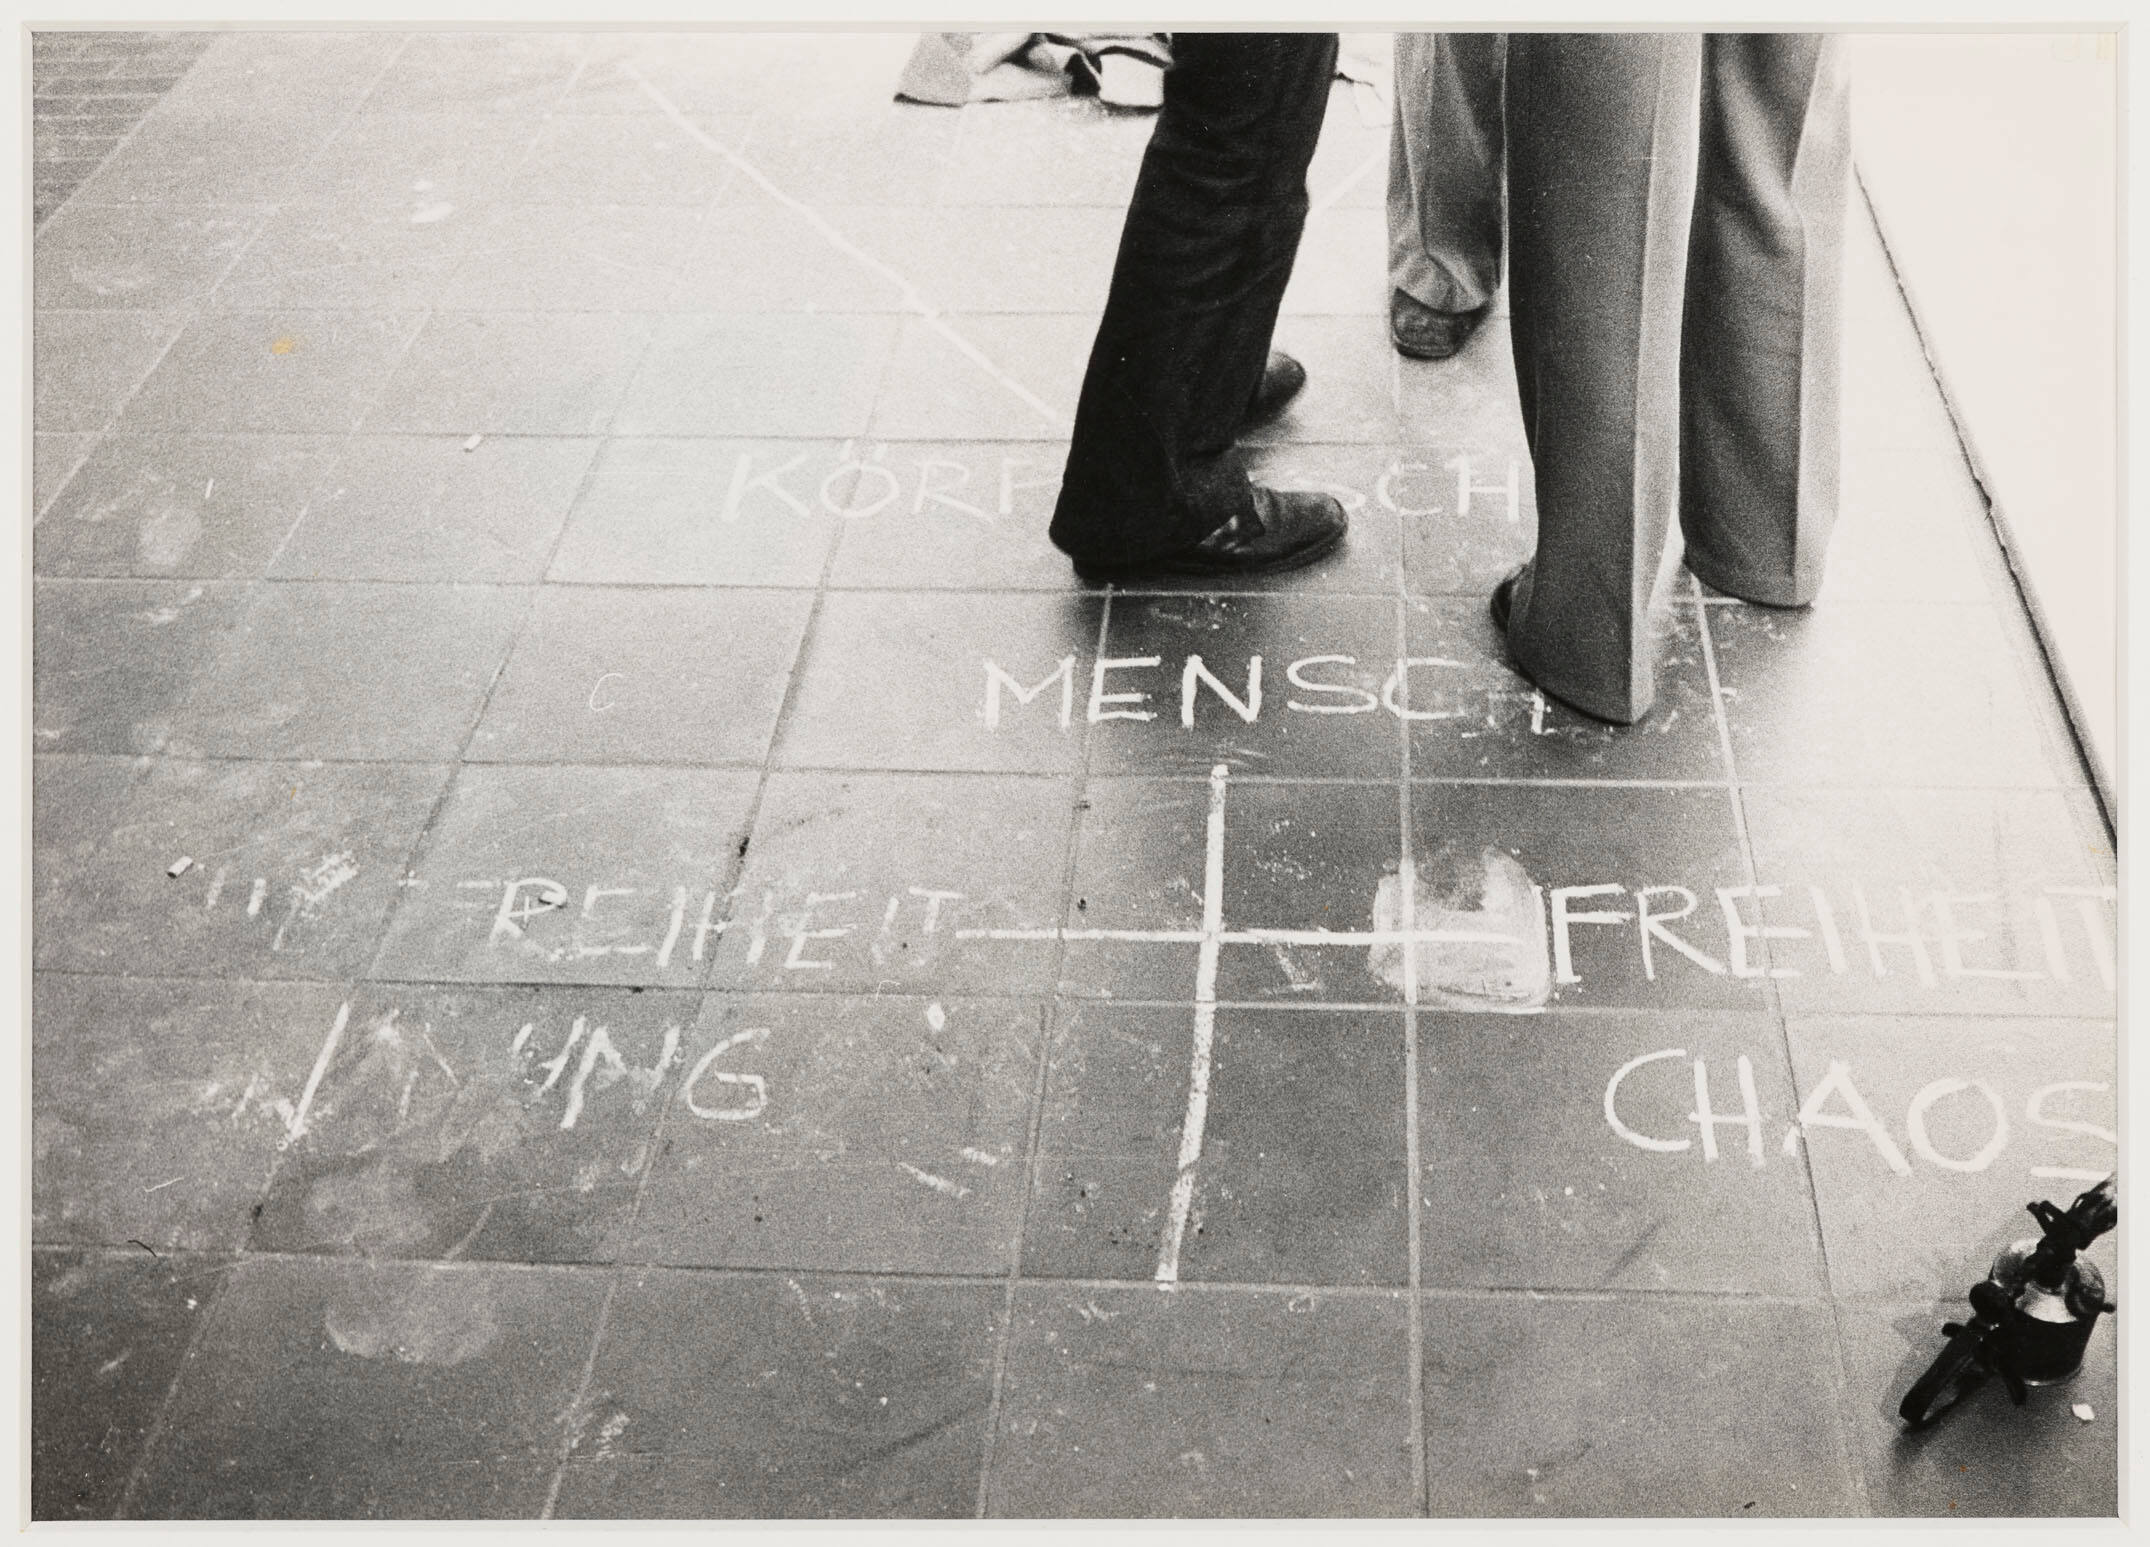 KÖRP SCH
MENSCH
REIHEIT FREIHEIT
UNG CHAOS